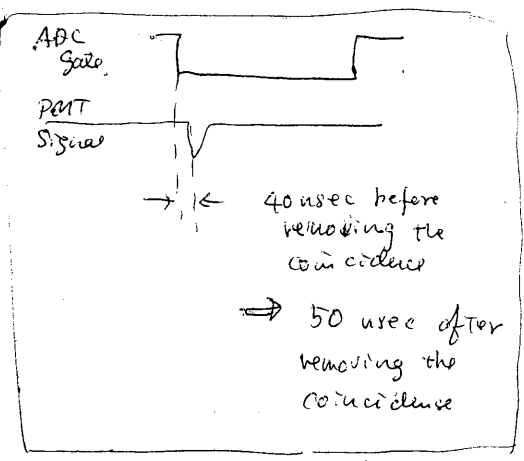 ADC
Gate
PMT
Signal
→ ← 40 nsec before
removing the
coincidence
⇒ 50 nsec after
removing the
coincidense